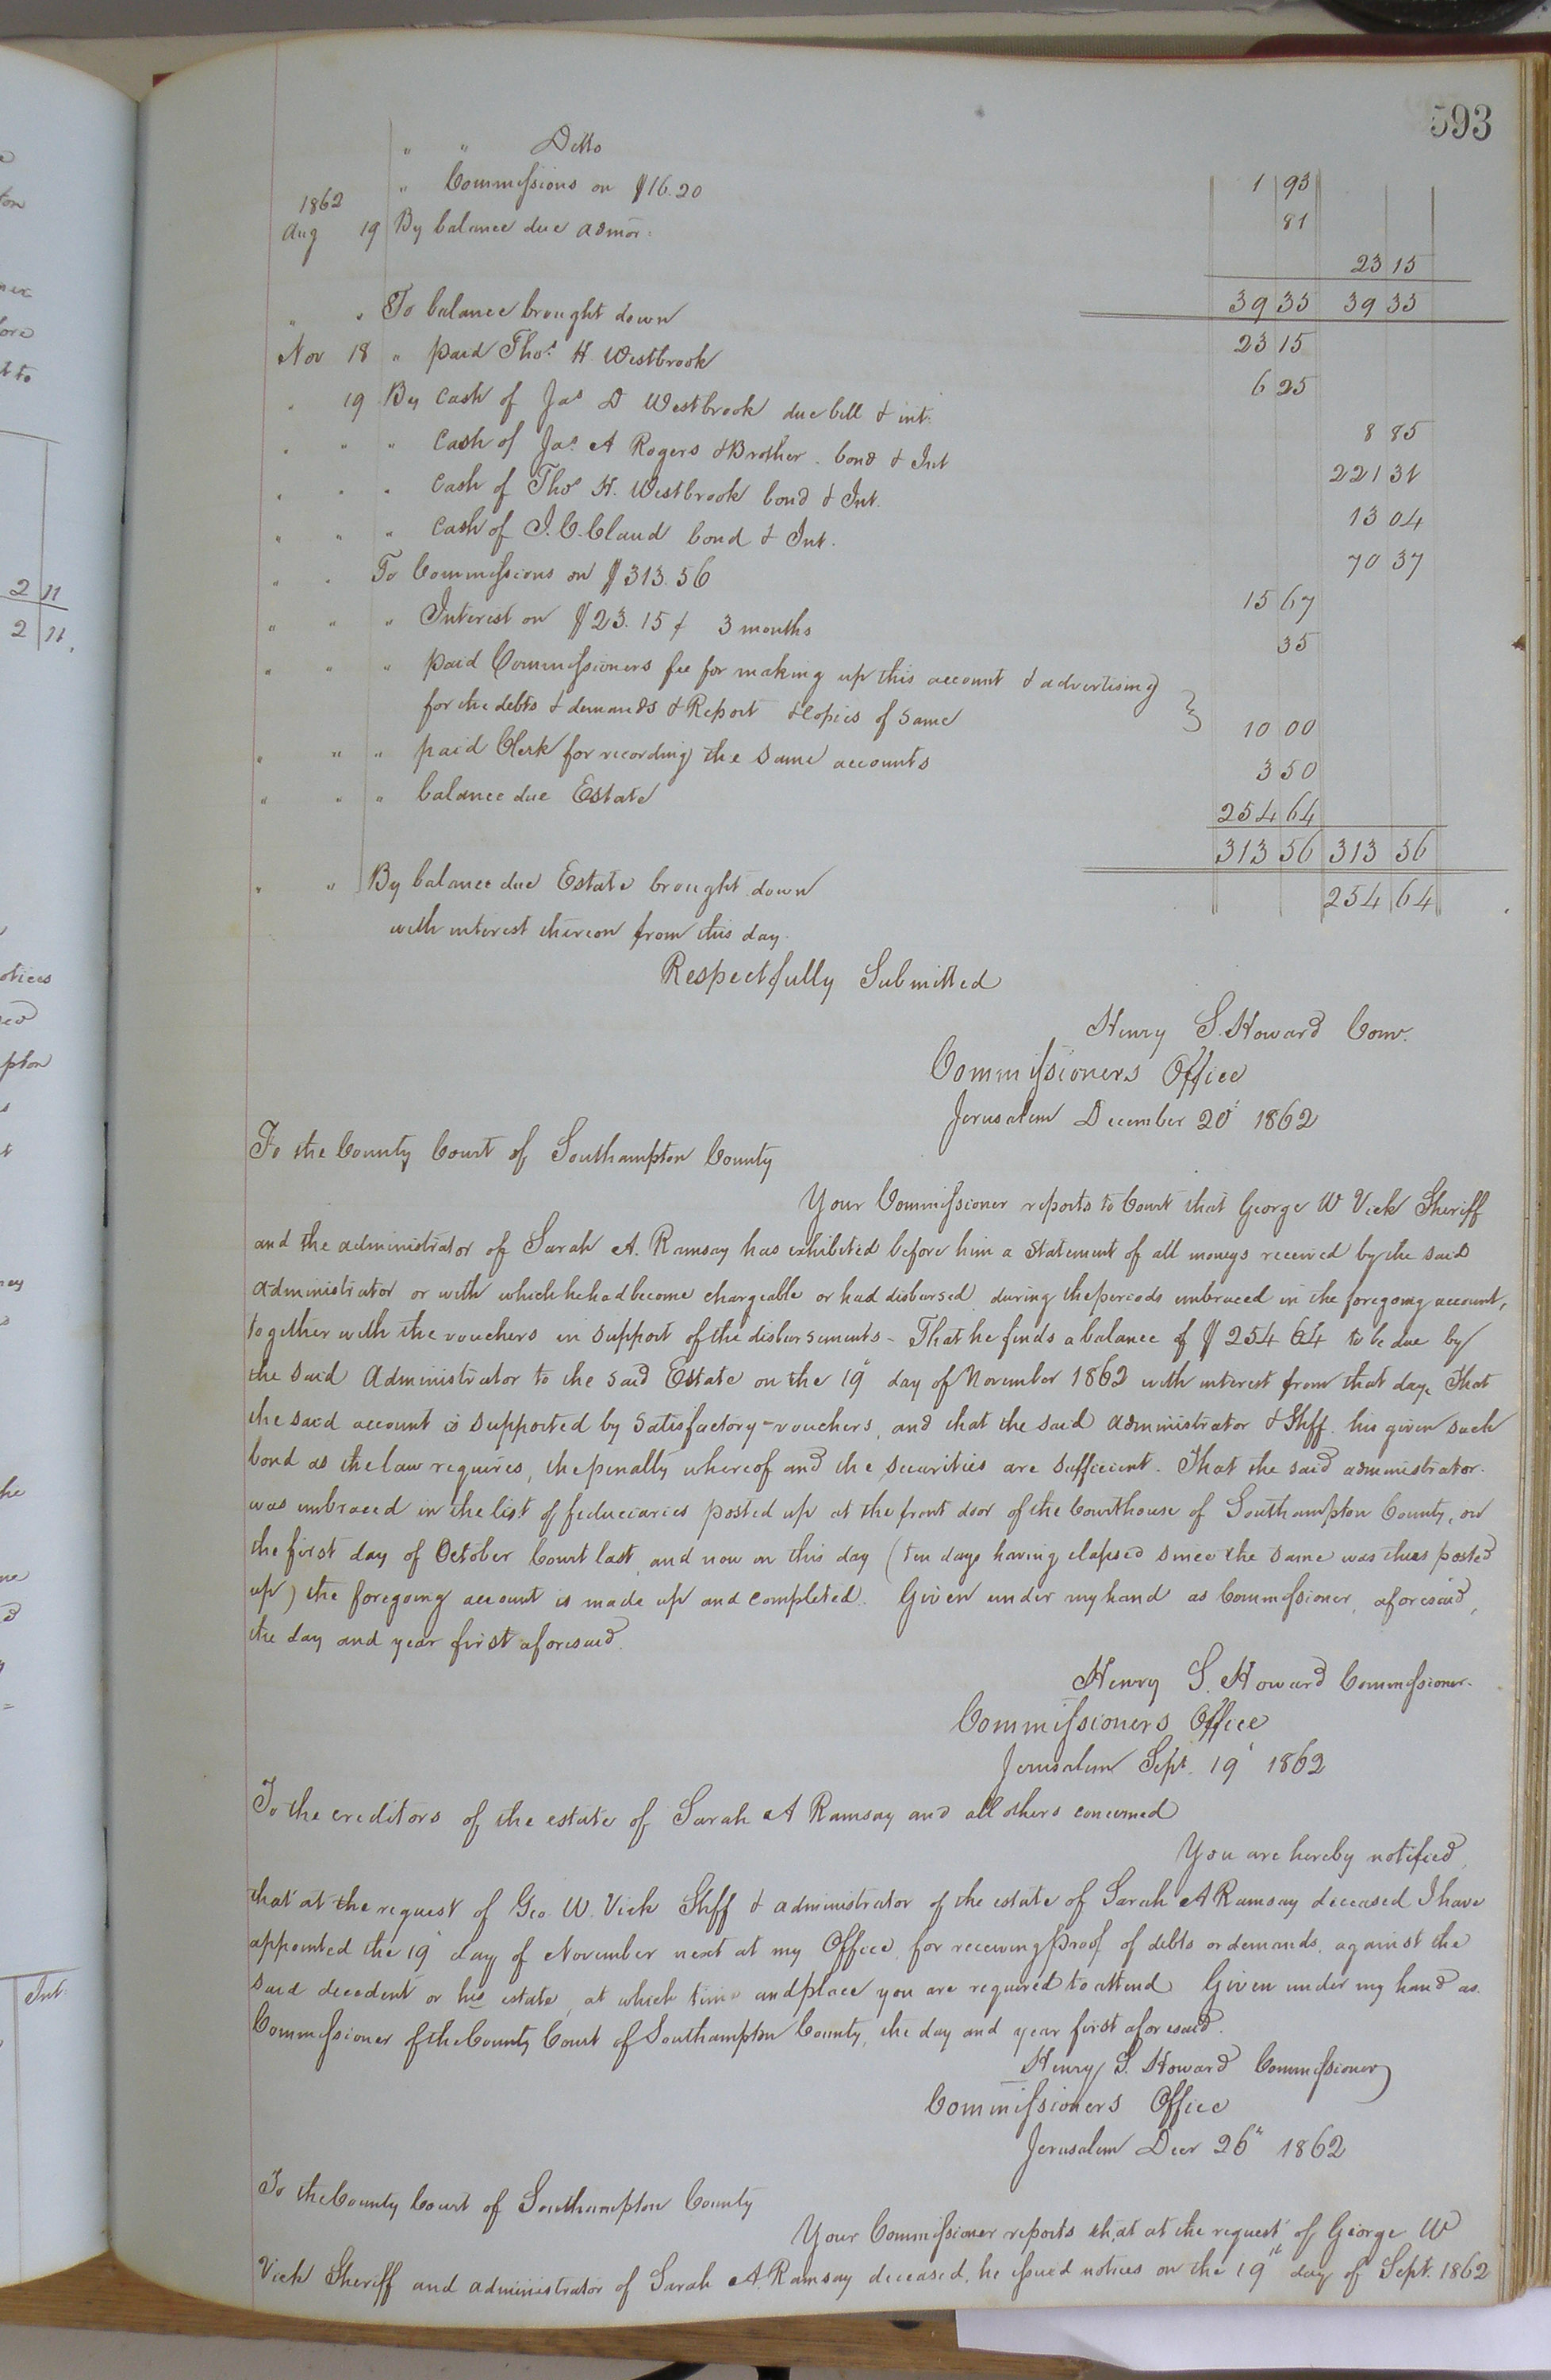 593
" " Ditto 1 93
" Commissions on $16.20 81
1862
Aug 19 By balance due admor. 23 15
39 35 39 35
" " To balance brought down 23 15
Nov 18 " paid Thos. H Westbrook 6 25
" 19 By Cash of Jas D Westbrook due bill & int. 8 85
" " " Cash of Jas. A Rogers & Brother. bond & Int 221 31
" " " Cash of Thos H. Westbrook bond & Int. 13 04
" " " Cash of J. C. Claud bond & Int. 70 37
" " To Commissions on $313.56 15 67
" " " Interest on $23.15 f 3 months 35
" " " paid Commissioners fee for making up this account & advertising
for the debts & demands & Report & Copies of same 10 00
" " " paid Clerk for recording the same accounts 3 50
" " " balance due Estate 254 64
313 56 313 56
" " By balance due Estate brought down 254 64
with interest thereon from this day.
Respectfully Submitted
Henry S. Howard Comr.
Commissioners Office
Jerusalem December 20th 1862
To the County Court of Southampton County
Your Commissioner reports to Court that George W Vick Sheriff
and the administrator of Sarah A. Ramsay has exhibited before him a Statement of all moneys received by the said
Administrator or with which he had become chargeable or had disbursed during the periods embraced in the foregoing account,
together with the vouchers in support of the disbursements - That he finds a balance of $254 64 to be due by
the said Administrator to the said Estate on the 19" day of November 1862 with interest from that day. That
the said account is supported by satisfactory vouchers, and that the said administrator & Shff. his given such
bond as the law requires, the penalty whereof and the securities are sufficient. That the said administrator.
was embraced in the list of fiduciaries posted up at the front door of the Courthouse of Southampton County, on
the first day of October Court last, and now on this day (ten days having elapsed since the same was thus posted
up) the foregoing account is made up and completed. Given under my hand as Commissioner, aforesaid,
the day and year first aforesaid.
Henry S. Howard Commissioner.
Commissioners Office
Jerusalem Sept. 19' 1862
To the creditors of the estate of Sarah A Ramsay and all others concerned
You are hereby notified,
that at the request of Geo. W. Vick Shff & administrator of the estate of Sarah A Ramsay deceased I have
appointed the 19" day of November next at my Office, for receiving proof of debts or demands, against the
said decedent or his estate, at which time and place you are required to attend Given under my hand as.
Commissioner of the County Court of Southampton County, the day and year first aforesaid.
Henry S. Howard Commissioner
Commissioners Office
Jerusalem Decr 26" 1862
To the County Court of Southampton County
Your Commissioner reports that at the request of George W
Vick Sheriff and administrator of Sarah A. Ramsay deceased, he issued notices on the 19th day of Sept. 1862